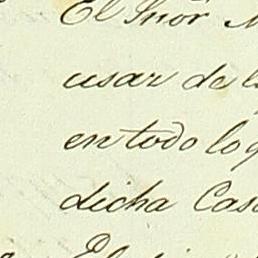 El Sñor
usar de
en todo lo
dicha Cas